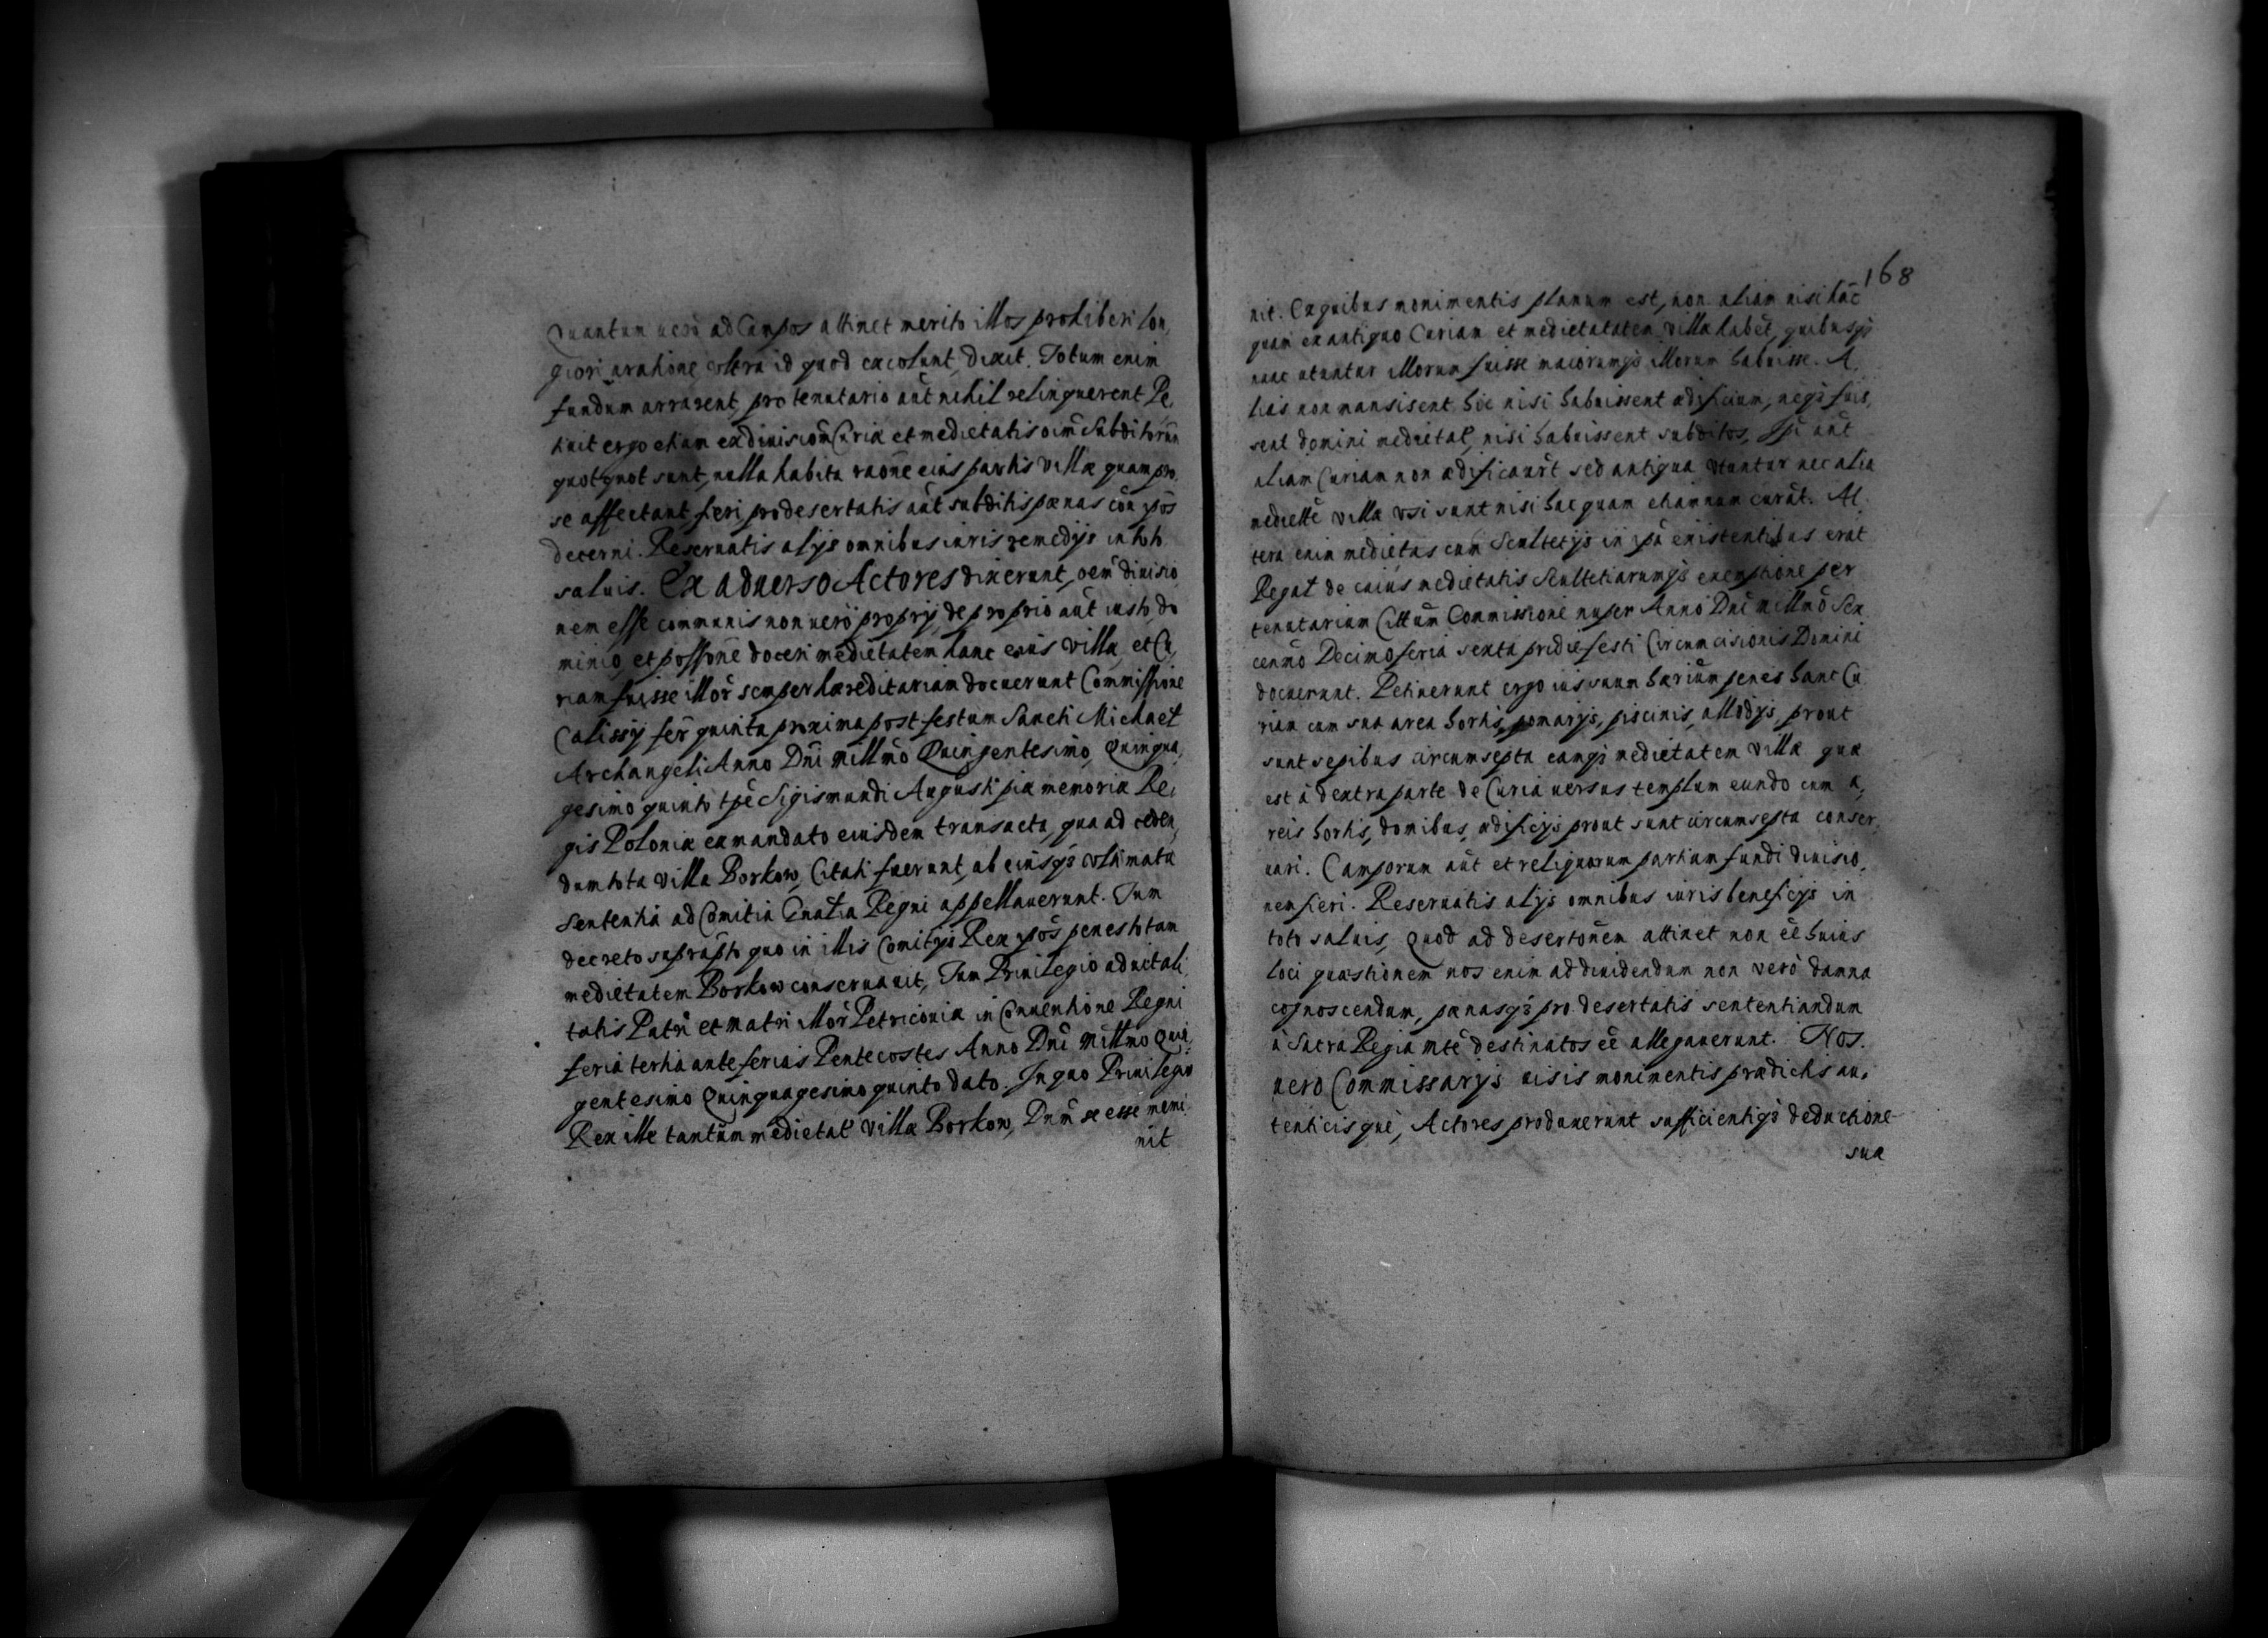 Quantum uero ad Campos attinet merito illos prohiberi lon,
giori arahione, vltra id quod excolunt, dixit. Totum enim
fundum arrarent, pro tenutario aūt nihil relinquerent Pe,
tiuit ergo etiam ex diuisioñ Curiæ et medietatis oim̄ Subditorūm
quotquot sunt, nulla habita raōne eius partis Villæ quam pro,
se affectant, fieri, pro desertatis aūt subditis pænas coñ ip̄os
decerni. Reseruatis alijs omnibus iuris remedijs in toto
saluis. Ex aduerso Actores dixerunt, oem̄ diuisio,
nem esse communis non uero proprij, de proprio aūt iusto, do
minio, et possōne doceri medietatem hanc eius Villæ, et Cu,
riam fuisse illor̄ semper hæreditariam docuerunt Commissione
Calissij fer̄ quinta proxima post festum Sancti Michael̄
Archangeli Anno Dn̄i Millm̄o Quingentesimo, Quinqua,
gesimo quinto tp̄e Sigismundi Augusti piæ memoriæ Re,
gis Poloniæ ex mandato eiusdem transacta, qua ad ceden,
dum tota Villa Borkow, Citati fuerunt, ab eiusq̄3 vltimata
Sententia ad Comitia Gn̄alia Regni appellauerunt. Tum
decreto suprap̄to quo in illis Comitijs Rex ip̄os penes totam
medietatem Borkow conseruauit, Tum Priuilegio aduitali,
tatis Patri et Matri illor̄ Petricouiæ in Conuentione Regni
feria tertia ante ferias Pentecostes Anno Dn̄i Millmo Quin,
gentesimo Quinquagesimo quinto dato. In quo Priuilegio
Rex ille tantum medietat̄ Villæ Borkow, Dn̄um se esse memi
nit
168
nit. Ex quibus monimentis planum est, non aliam nisi hāc
quam ex antiquo Curiam et medietatem Villæ habēt, quibusq̄3
nunc utuntur illorum fuisse maiorumq̄3 illorum habuisse. A,
lias non mansisent hic nisi habuissent ædificium, neq̄3 fuis,
sent domini medietat̄, nisi habuissent subditos, Ip̄i aūt
aliam Curiam non ædificaur̄t sed antiqua vtuntur nec alia
medietē villæ vsi sunt nisi hac quam etiamnum curāt. Al
tera enim medietas cum Scultetijs in ip̄a existentibus erat
Regal̄ de cuius medietatis Scultetiarumq̄3 exemptione per
tenutarium Citt̄um Commissione nuper Anno Dn̄i millm̄o Sex
cenm̄o Decimo feria sexta pridie festi Circumcisionis Domini
docuerunt. Petiuerunt ergo ius suum hærium penes hanc Cu
riam cum sua area hortis, pomarijs, piscinis, allodijs, prout
sunt sepibus circumsepta eamq̄3 medietatem Villæ quæ
est à dextra parte de Curia uersus templum eundo cum a,
reis hortis, domibus, ædificijs prout sunt circumsepta conser,
uari. Camporum aūt et reliquarum partium fundi diuisio,
nem fieri. Reseruatis alijs omnibus iuris beneficijs in
toto saluis, Quod ad desertōnem attinet non eē huius
loci quæstionem nos enim ad diuidendum non verò damna
cognoscendum, pænasq̄3 pro desertatis sententiandum
à Sacra Regia Mtē destinatos eē allegauerunt. Nos.
uero Commissarijs uisis monimentis prædictis au,
tenticis què, Actores produxerunt sufficientiq̄3 deductione
sua